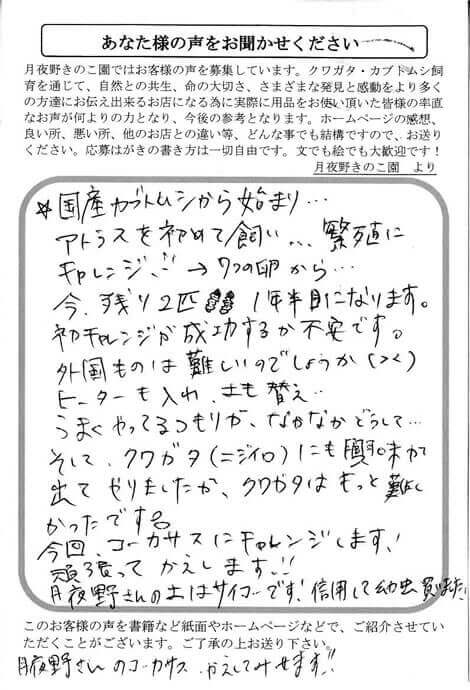 あなた様の声をお聞かせください
月夜野きのこ園ではお客様の声を募集しています。クワガタ・カブトムシ飼
育を通じて、自然との共生、命の大切さ、さまざまな発見と感動をより多く
の方達にお伝え出来るお店になる為に実際に用品をお使い頂いた皆様の率直
なお声が何よりの力となり、今後の参考となります。ホームページの感想、
良い所、悪い所、他のお店との違い等、どんな事でも結構ですので、お送り
ください。応募はがきの書き方は一切自由です。文でも絵でも大歓迎です！
月夜野きのこ園　より
☆国産カブトムシから始まり…
アトラスを初めて飼い… 繁殖に
チャレンジ!! → 7つの卵から…
今、残り2匹 1年半目になります。
初チャレンジが成功するか不安です。
外国ものは難しいのでしょうか(><)
ヒーターも入れ、土も替え…
うまくやってるつもりが、なかなかどうして…
そして、クワガタ(ニジイロ)にも興味が
出て やりましたが、クワガタはもっと難し
かったです。
今回、コーカサスにチャレンジします!
頑張って かえします!!
月夜野さんの土はサイコーです! 信用して幼虫買いました!
このお客様の声を書籍など紙面やホームページなどで、ご紹介させてい
ただくことがございます。ご了承の上お送り下さい。
月夜野さんのコーカサス かえしてみせます!!